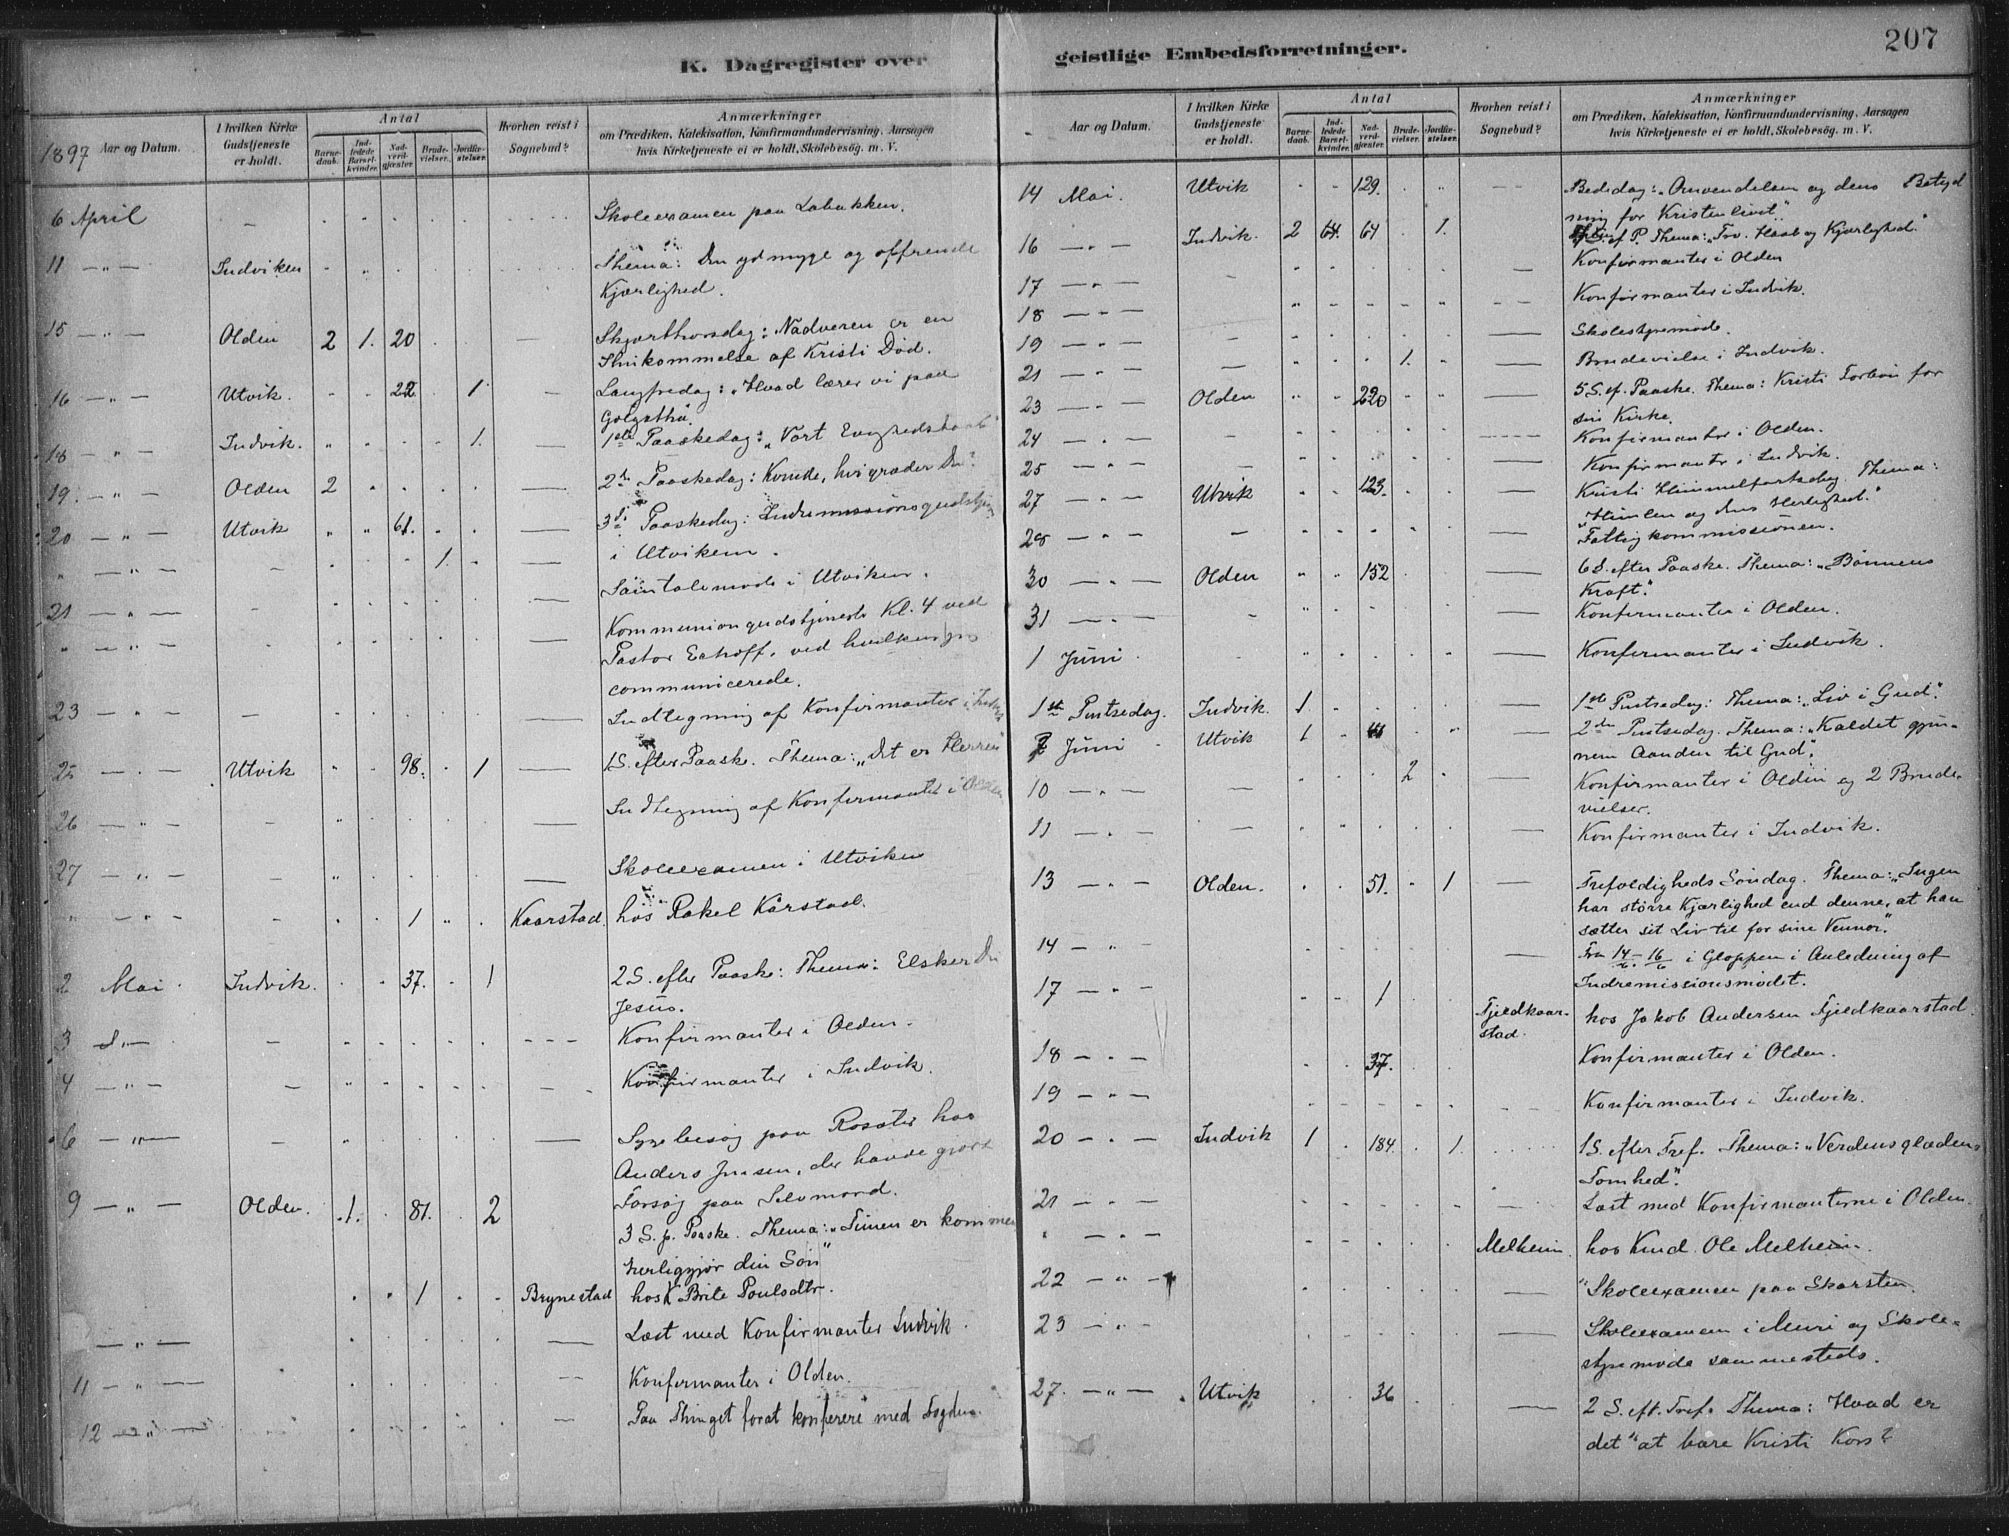 K. Dagregister over
1897 Aar og Datum.
I hvilken Kirke Gudstjeneste er holdt.
Antal
Barnedaab.
Indledede Barselkvinder.
Nadverdgjæster
Brudevielser.
Jordfæstelser.
Hvorhen reist i Sognebud?
Anmærkninger
om Prædiken, Katekisation, Konfirmandundervisning, Aarsagen
hvis Kirketjeneste ei er holdt, Skolebesög. m. V.
6 April - Skoleexamen paa
11 Indviken Thema: Den ydmyge og offrende
Kjærlighed.
15 Olden 2 1. 20 Skjærthorsdag: Nadveren er en
Ihukommelse af Kristi Död.
16 Utvik. 22 1 Langfredag: "Hvad lærer vi paa
Golgatha"
18 Indvik. 1. 1ste Paaskedag: "Vort Evighedshaab"
19. Olden 2 2de Paaskedag: Kvinde, hvi græder Du?
20 Utvik 61. 3di Paaskedag: Indremissionsgudstj
1. i Utviken.
21 Samtalemöde i Utviken.
Kommuniongudstjeneste Kl. 4 ved
Pastor ved hvilken
communicerede.
23 Indtegning af Konfirmanter i Indvik
25 Utvik 98. 1 1 S. efter Paaske. Thema: "Det er Herren"
26 Indtegning af Konfirmanter i Olden
27 Skoleexamen i Utviken
1 Kaarstad. hos Rakel Kårstad.
2 Mai Indvik. 37. 1 2 S. efter Paaske: Thema: Elsker Du
Jesus.
3 Konfirmanter i Olden.
4 Konfirmanter i Indvik.
6 Sygebesög paa hos
Anders der havde gjort
Forsög paa Selvmord.
9 Olden. 1. 81. 2 3 S. p. Paaske. Thema: "Timen er kommen
herliggjör din Sön"
1 Brynestad hos Brite Poulsdtr.
Læst med Konfirmanter Indvik.
11 Konfirmanter i Olden.
12 Paa Thinget forat konferere med Fogden.
geistlige Embedsforretninger.
207
Aar og Datum.
I hvilken Kirke Gudstjeneste er holdt.
Antal
Barnedaab.
Indledede Barselkvinder.
Nadverdgjæster
Brudevielser.
Jordfæstelser.
Hvorhen reist i Sognebud?
Anmærkninger
om Prædiken, Katekisation, Konfirmandundervisning, Aarsagen
hvis Kirketjeneste ei er holdt, Skolebesög. m. V.
14 Mai. Utvik 129. Bededag: "Omvendelsen og dens Betyd
ning for Kristenlivet"
16 Indvik. 2 64. 64 1. S. ef P. Thema: "Tro. Haab og Kjærlighed."
17 Konfirmanter i Olden
18 Konfirmanter i Indvik.
19 Skolestyremöde.
21 1. Brudevielse i Indvik.
23 Olden 220 5 S. ef. Paaske. Thema: Kristi Forbön for
sin Kirke.
24 Konfirmanter i Olden.
25 Konfirmanter i Indvik.
27 Utvik 123. Kristi Himmelfartsdag. Thema:
"Himlen og dens Herlighed."
28 Fattigkommissionen.
30 Olden 152 6 S. efter Paaske. Thema: "Bönnens
Kraft."
31 Konfirmanter i Olden.
1 Juni Konfirmanter i Indvik.
1ste Pintsedag. Indvik. 1 1ste Pintsedag: Thema: "Liv i Gud".
7 Juni Utvik 1 2den Pintsedag. Thema: "Kaldet gjen-
nem Aanden til Gud".
10 2 Konfirmanter i Olden og 2 Brude-
vielser.
11 Konfirmanter i Indvik.
13 Olden. 51. 1 Trefoldigheds Söndag. Thema: "Ingen
har större Kjærlighed end denne, at han
sætter sit Liv til for sine Venner".
14 Fra 14/6 - 16/6 i Gloppen i Anledning af
Indremissionsmödet.
17 1 Fjeldkaar-
stad. hos Jakob Andersen Fjeldkaarstad.
18 37. Konfirmanter i Olden.
19 Konfirmanter i Indvik.
20 Indvik 1 184. 1. 1 S. efter Tref. Thema: "Verdensglædens
Tomhed".
21 Læst med Konfirmanterne i Olden.
Melheim. hos Knud Ole Melheim.
22 Skoleexamen paa Skarsten.
23 Skoleexamen i Muri og Skole-
styremöde sammesteds.
27. Utvik 36 2 S. eft. Tref. Thema: Hvad er
det "at bære Kristi Kors"?